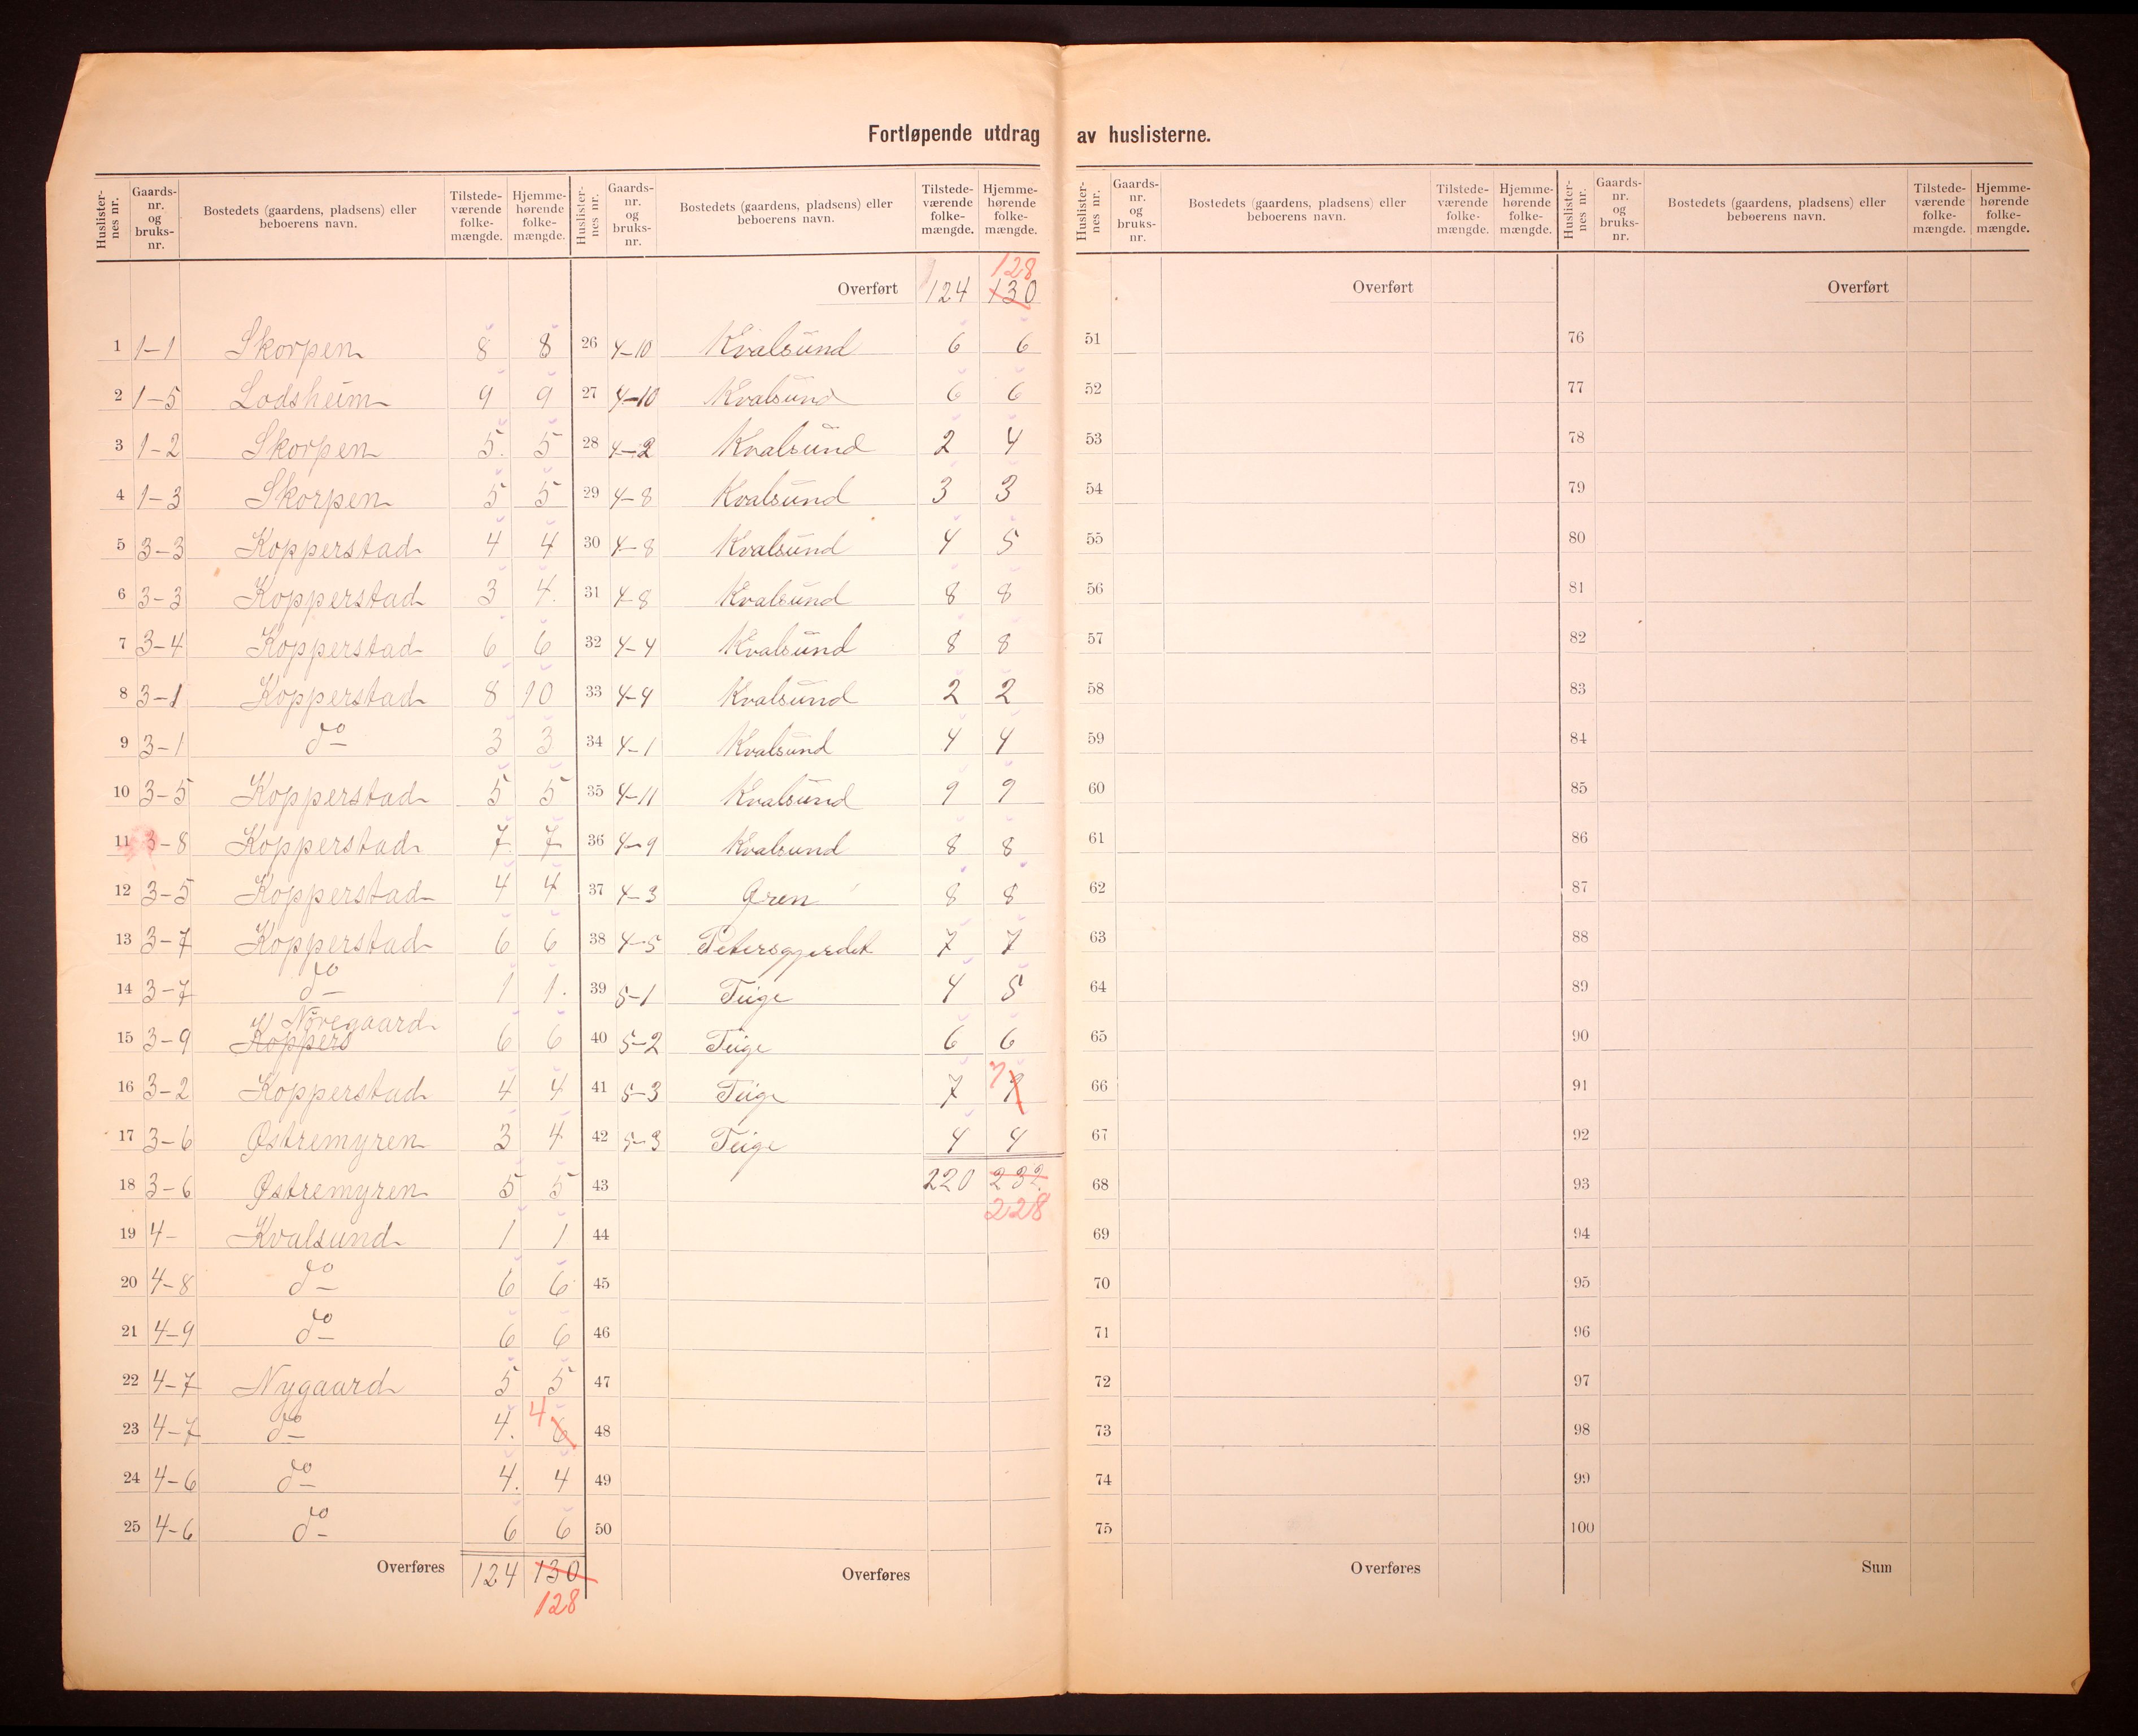 Fortløpende utdrag av huslisterne.
Huslisternes nr. Gaards-nr. og bruks-nr. Bostedets (gaardens, pladsens) eller beboerens navn. Tilstedeværende folkemængde. Hjemmehørende folkemængde.
1 1-1 Skorpen 8 8
2 1-5 Lodsheim 9 9
3 1-2 Skorpen 5. 5
4 1-3 Skorpen 5 5
5 3-3 Kopperstad 4 4
6 3-3 Kopperstad 3 4.
7 3-4 Kopperstad 6 6
8 3-1 Kopperstad 8 10
9 3-1 do 3 3
10 3-5 Kopperstad 5 5
11 3-8 Kopperstad 7 7
12 3-5 Kopperstad 4 4
13 3-7 Kopperstad 6 6
14 3-7 do 1 1.
Nøregaard
15 3-9 Koppers 6 6
16 3-2 Kopperstad 4 4
17 3-6 Østremyren 3 4
18 3-6 Østremyren 5 5
19 4- Kvalsund 1 1
20 4-8 do 6 6
21 4-9 do 6 6
22 4-7 Nygaard 5 5
23 4-7 do 4. 4 6
24 4-6 do 4. 4
25 4-6 do 6 6
Overføres 124 130
128
Huslisternes nr. Gaards-nr. og bruks-nr. Bostedets (gaardens, pladsens) eller beboerens navn. Tilstedeværende folkemængde. Hjemmehørende folkemængde.
128
Overført 124 130
26 4-10 Kvalsund 6 6
27 4-10 Kvalsund 6 6
28 4-2 Kvalsund 2 4
29 4-8 Kvalsund 3 3
30 4-8 Kvalsund 4 5
31 4-8 Kvalsund 8 8
32 4-4 Kvalsund 8 8
33 4-4 Kvalsund 2 2
34 4-1 Kvalsund 4 4
35 4-11 Kvalsund 9 9
36 4-9 Kvalsund 8 8
37 4-3 Øren 8 8
38 4-5 Petersgjerdet 7 7
39 5-1 Teige 4 5
40 5-2 Teige 6 6
41 5-3 Teige 7 7
42 5-3 Teige 4 4
43 220 232.
228
44
45
46
47
48
49
50
Overføres
Huslisternes nr. Gaards-nr. og bruks-nr. Bostedets (gaardens, pladsens) eller beboerens navn. Tilstedeværende folkemængde. Hjemmehørende folkemængde.
Overført
51
52
53
54
55
56
57
58
59
60
61
62
63
64
65
66
67
68
69
70
71
72
73
74
75
Overføres
Huslisternes nr. Gaards-nr. og bruks-nr. Bostedets (gaardens, pladsens) eller beboerens navn. Tilstedeværende folkemængde. Hjemmehørende folkemængde.
Overført
76
77
78
79
80
81
82
83
84
85
86
87
88
89
90
91
92
93
94
95
96
97
98
99
100
Sum